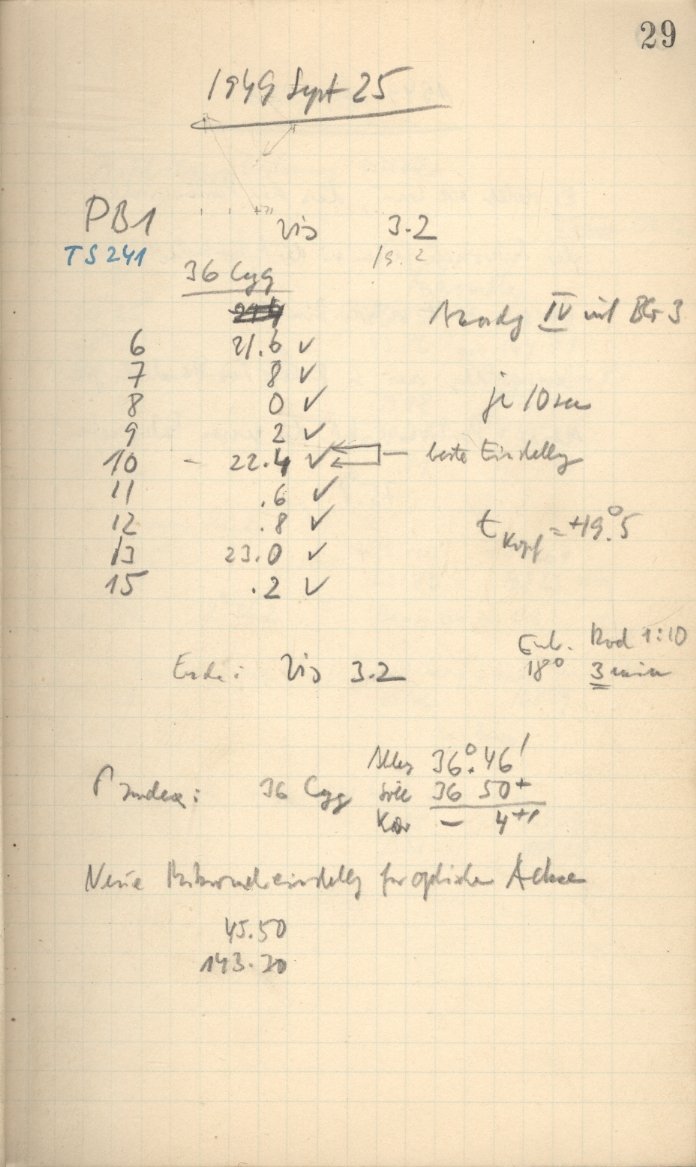 29
1949 Sept 25
PB1 vis 3.2
TS 241 19.2
36 Cyg
6 21.6 ✓
IV mit 3
7 8 ✓
8 0 ✓ je 10
9 2 ✓
10 - 22.4 ✓ beste Einstellg
11 .6 ✓
12 .8 ✓ t Kopf = +19°.5
13 23.0 ✓
15 .2 ✓
Entw. Rod 1:10
Ende: vis 3.2 18° 3 min
36° 46'
Index: 36 Cyg soll 36 50+
Kor - 4+'
Neue für optische Achse
45.50
143.20